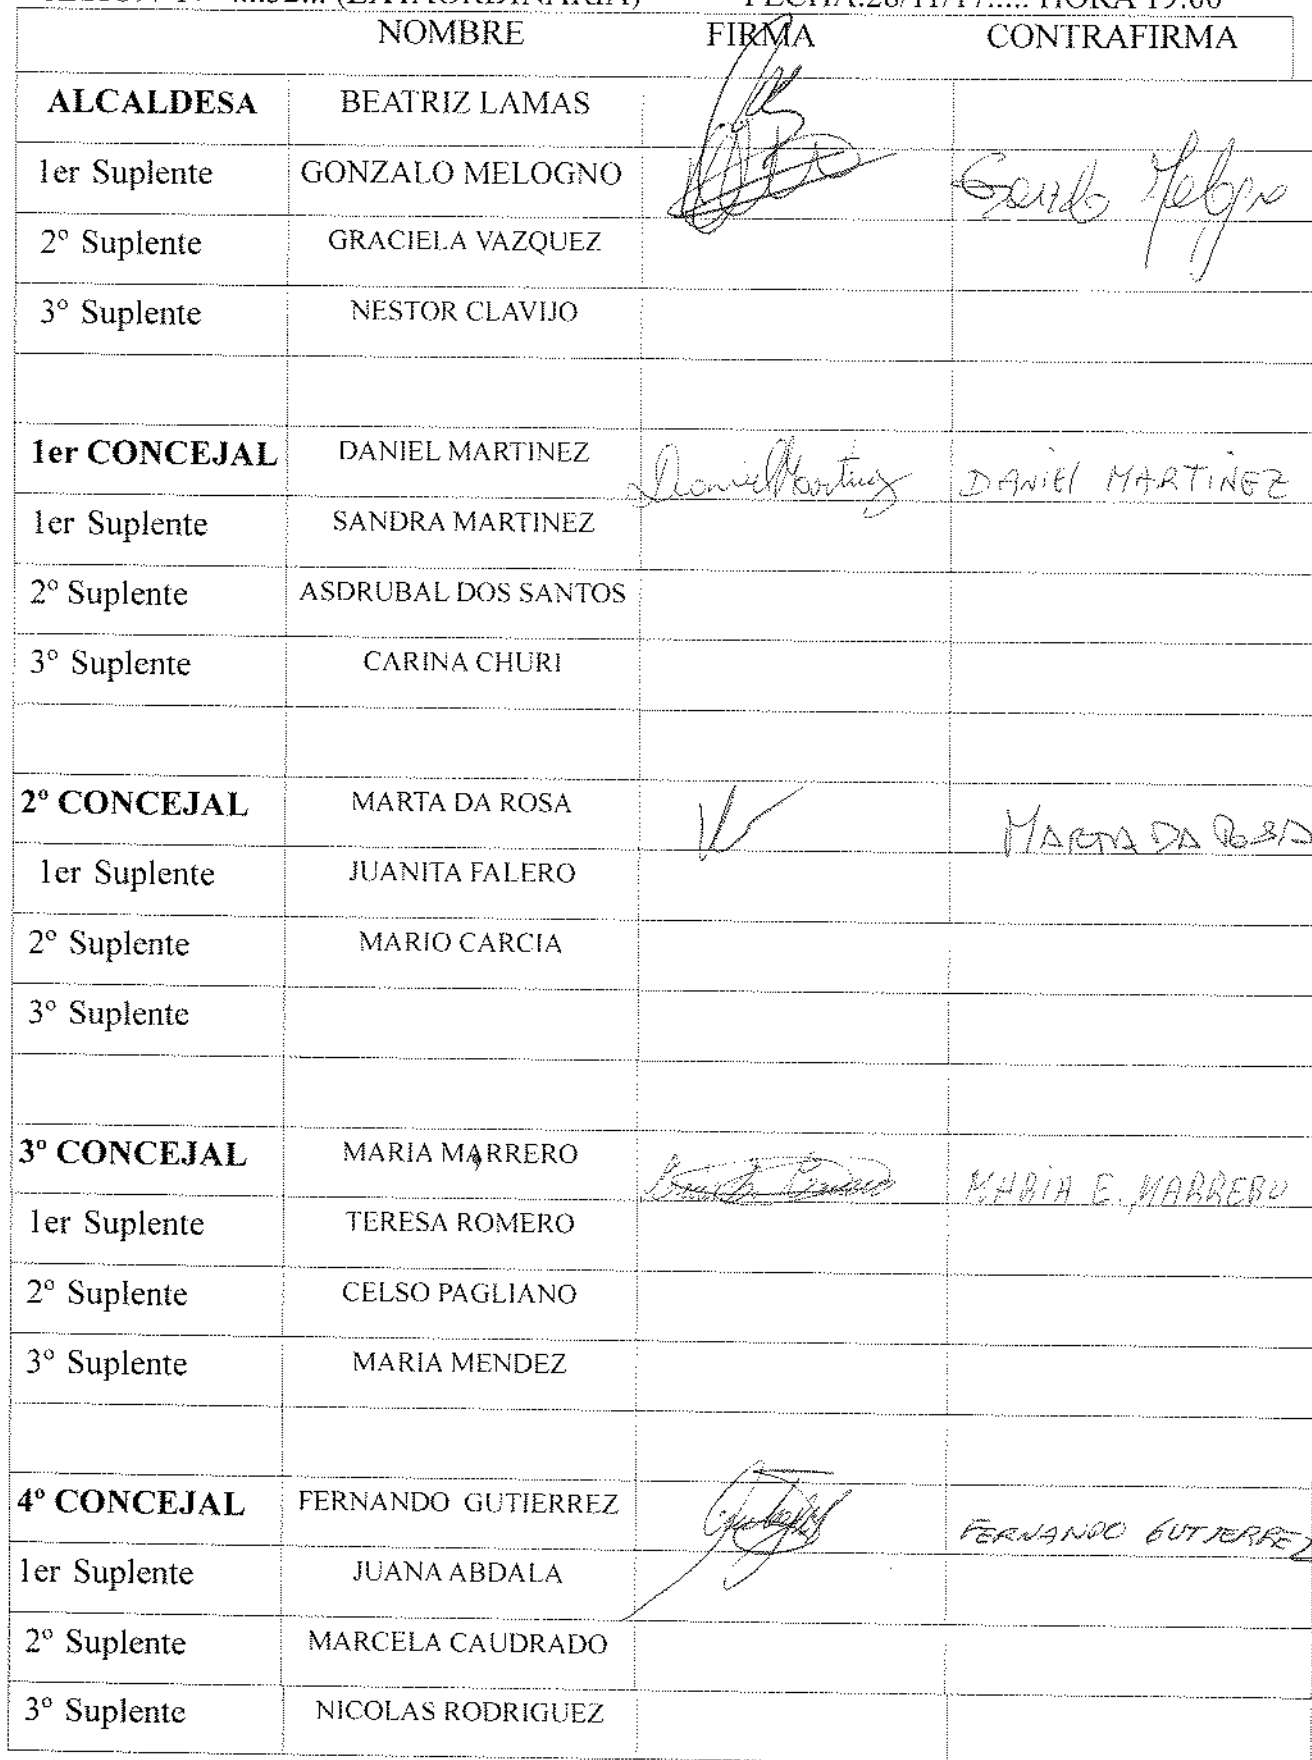 (EXTAORDINARIA) FECHA:28/11/17..... HORA 19:00
NOMBRE FIRMA CONTRAFIRMA
ALCALDESA BEATRIZ LAMAS
1er Suplente GONZALO MELOGNO Gonzalo Melogno
2º Suplente GRACIELA VAZQUEZ
3º Suplente NESTOR CLAVIJO
1er CONCEJAL DANIEL MARTINEZ Daniel Martinez DANIEl MARTINEZ
1er Suplente SANDRA MARTINEZ
2º Suplente ASDRUBAL DOS SANTOS
3º Suplente CARINA CHURI
2º CONCEJAL MARTA DA ROSA MARTA DA ROSA
1er Suplente JUANITA FALERO
2º Suplente MARIO CARCIA
3º Suplente
3º CONCEJAL MARIA MARRERO MARIA E. MARRERO
1er Suplente TERESA ROMERO
2º Suplente CELSO PAGLIANO
3º Suplente MARIA MENDEZ
4º CONCEJAL FERNANDO GUTIERREZ FERNANDO GUTIERREZ
1er Suplente JUANA ABDALA
2º Suplente MARCELA CAUDRADO
3º Suplente NICOLAS RODRIGUEZ